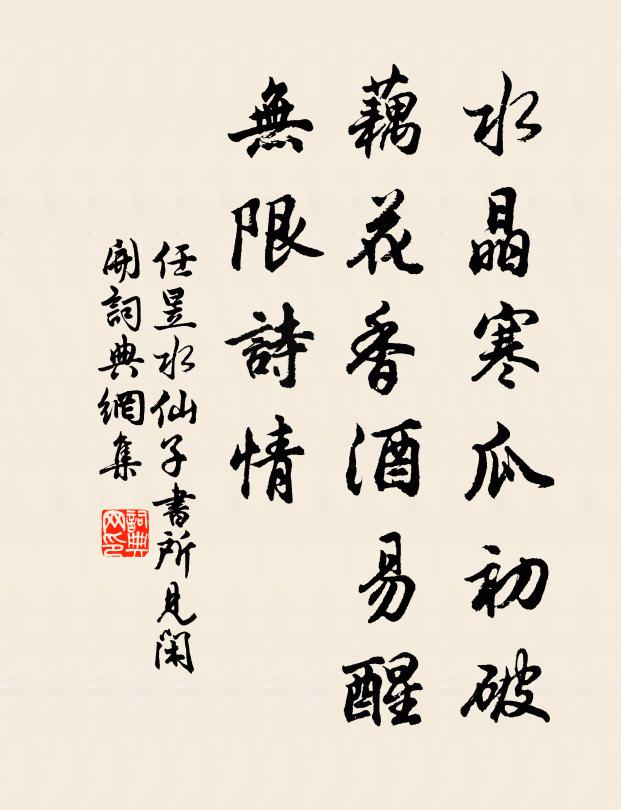 水晶寒瓜初破
藕花香酒易醒
無限詩情
任昱水仙子書所見閑
開詞典網集
詞典网印